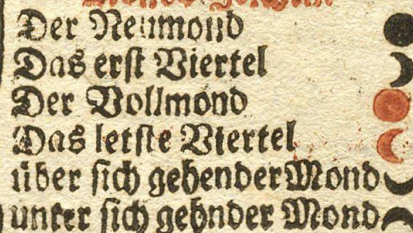 Der Neumond
Das erst Viertel
Der Vollmond
Das letste Viertel
über sich gehender Mond
unter sich gehnder Mond